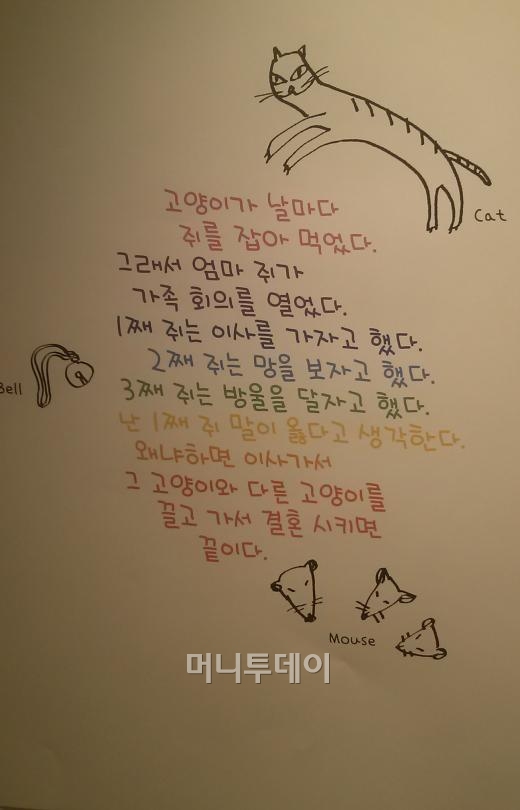 Cat
고양이가 날마다
쥐를 잡아 먹었다.
그래서 엄마 쥐가
가족 회의를 열었다.
1째 쥐는 이사를 가자고 했다.
2째 쥐는 망을 보자고 했다.
Bell
3째 쥐는 방울을 달자고 했다.
난 1째 쥐 말이 옳다고 생각한다.
왜냐하면 이사가서
그 고양이와 다른 고양이를
끌고 가서 결혼 시키면
끝이다.
Mouse
머니투데이